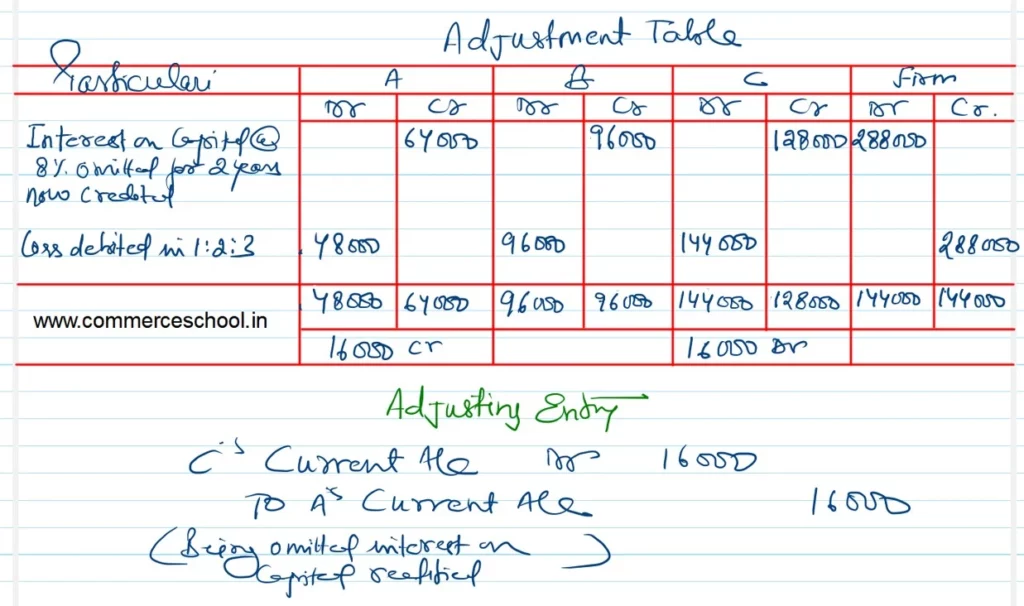 Adjustment Table
Particulars A B C Firm
Dr Cr Dr Cr Dr Cr Dr Cr.
Interest on Capital @ 64000 96000 128000 288000
8% omitted for 2 years
now credited
Loss debited in 1:2:3 48000 96000 144000 288000
48000 64000 96000 96000 144000 128000 144000 144000
www.commerceschool.in
16000 Cr 16000 Dr
Adjusting Entry
C's Current A/c Dr 16000
To A's Current A/c 16000
(Being omitted interest on
Capital rectified)